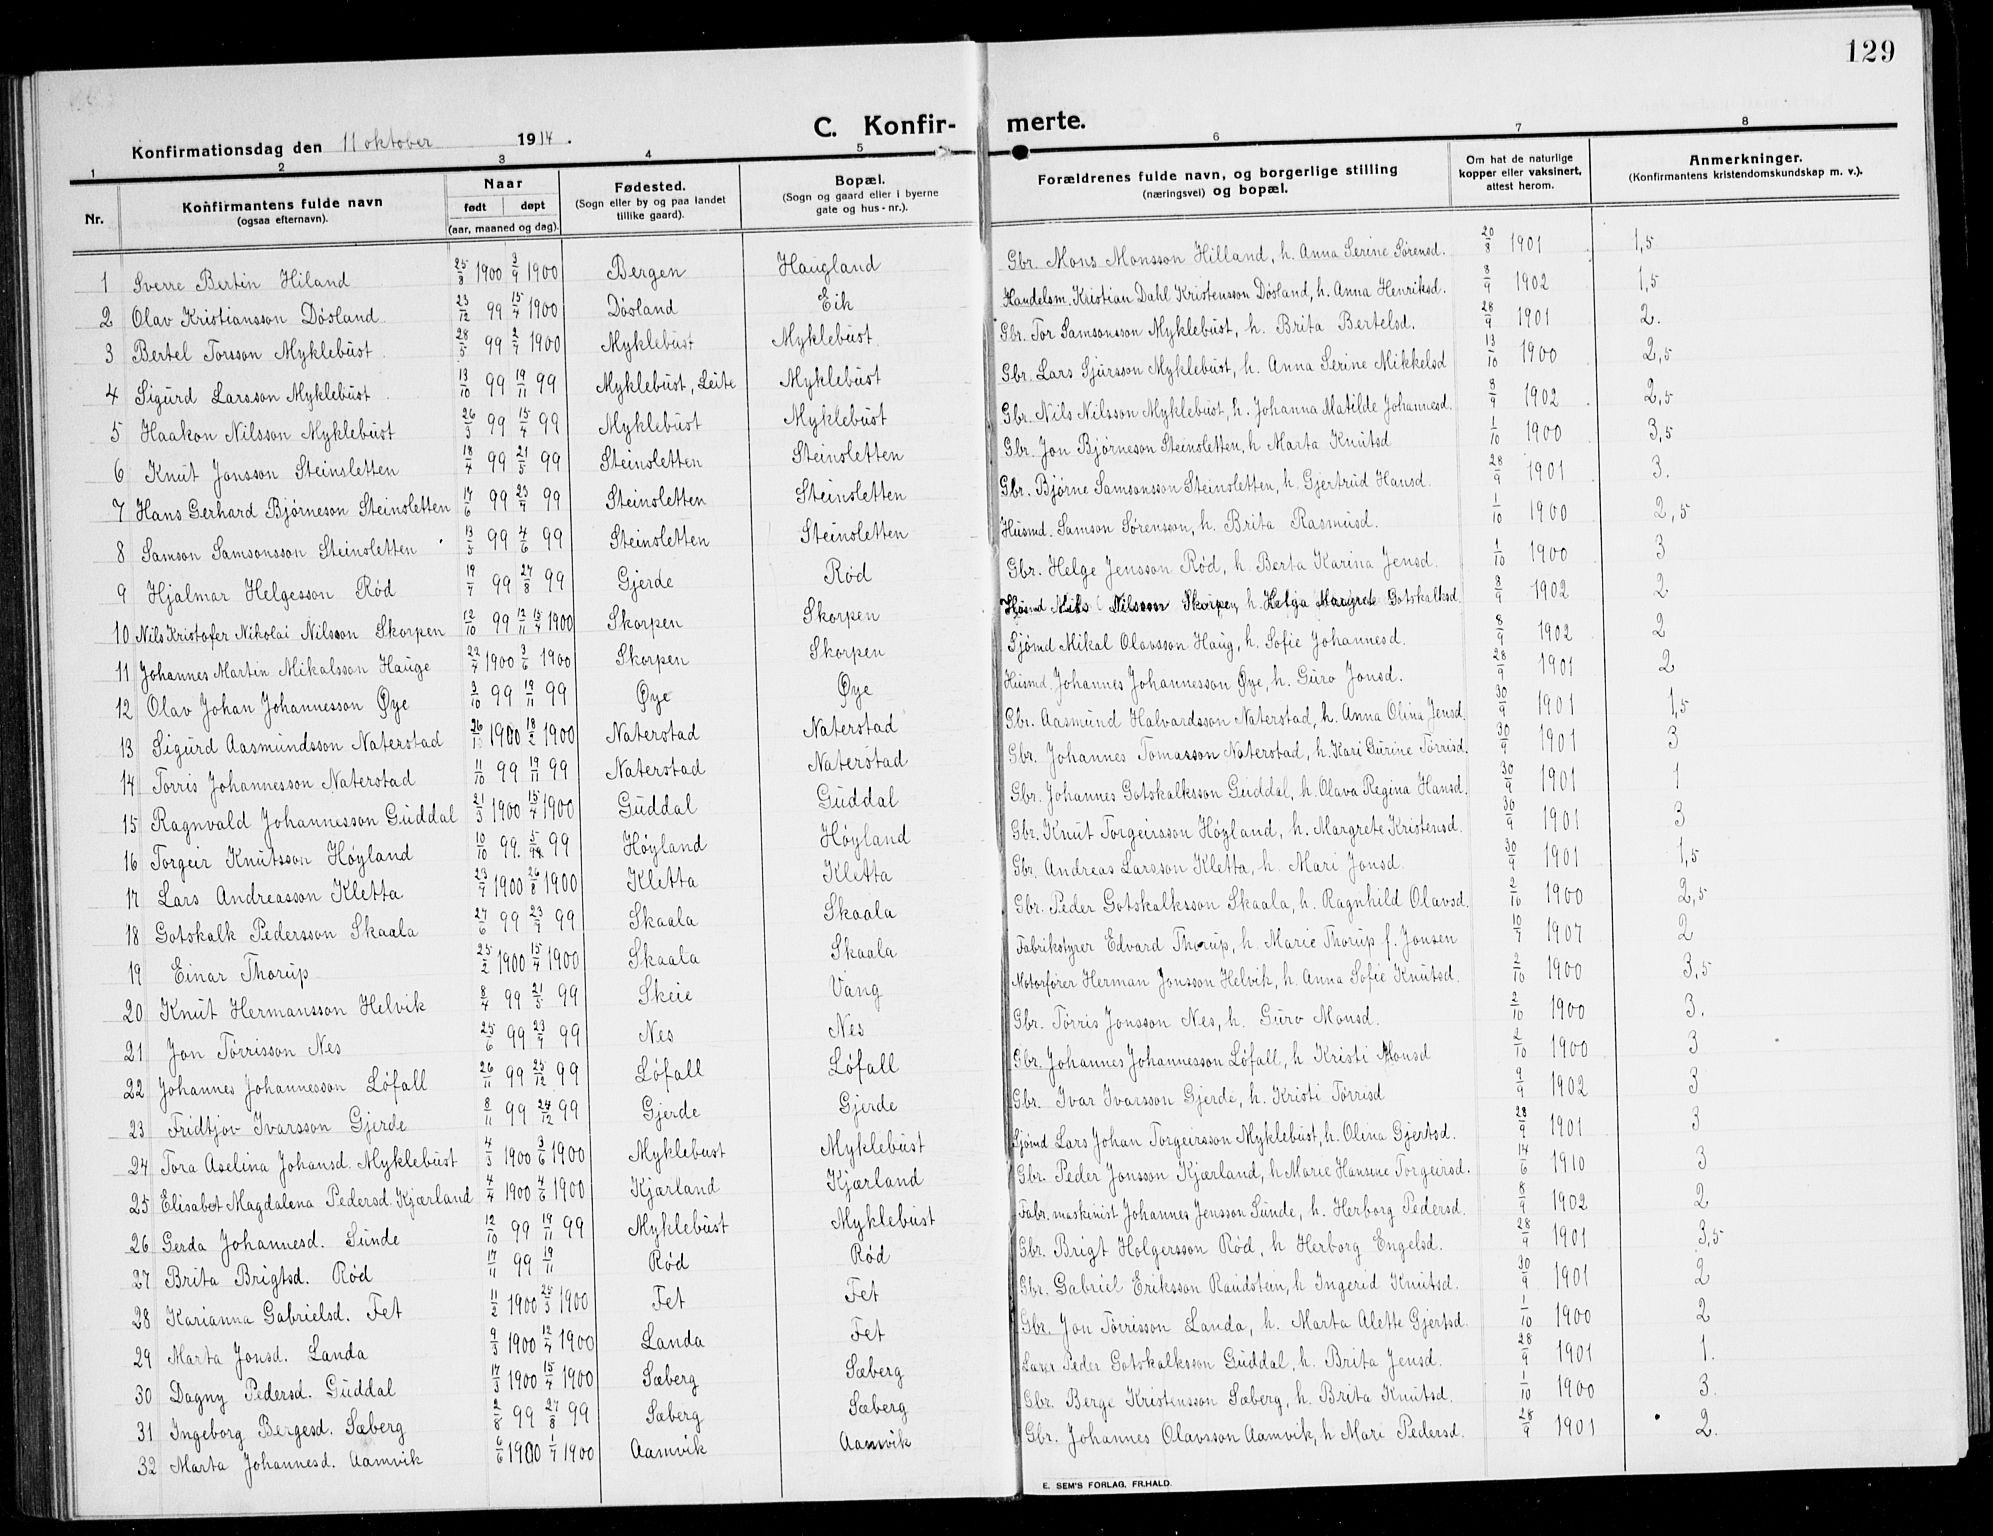 129
C. Konfirmerte.
Konfirmationsdag den 11 oktober 1914.
1 2 3 4 5 6 7 8
Nr. Konfirmantens fulde navn (ogsaa efternavn). Naar født døpt (aar, maaned og dag). Fødested. (Sogn eller by og paa landet tillike gaard). Bopæl. (Sogn og gaard eller i byerne gate og hus-nr.). Forældrenes fulde navn, og borgerlige stilling (næringsvei) og bopæl. Om hat de naturlige kopper eller vaksinert, attest herom. Anmerkninger. (Konfirmantens kristendomskundskap m. v.).
1 Sverre Bertin Hiland 25/8 1900 3/9 1900 Bergen Haugland Gbr. Mons Monsson Hilland, h. Anna Serine Sørensd. 20/8 1901 1,5
2 Olav Kristiansson Døsland 23/12 99 15/4 1900 Døsland Eik Handelsm. Kristian Dahl Kristensson Døsland, h. Anna Henriksd. 8/9 1902 1,5
3 Bertel Torsson Myklebust 28/5 99 2/7 1900 Myklebust Myklebust Gbr. Tor Samsonsson Myklebust, h. Brita Bertelsd. 28/9 1901 2.
4 Sigurd Larsson Myklebust 13/10 99 19/11 99 Myklebust, Leite Myklebust Gbr. Lars Sjursson Myklebust, h. Anna Serine Mikkelsd 13/10 1900 2,5
5 Haakon Nilsson Myklebust 26/3 99 15/4 99 Myklebust Myklebust Gbr. Nils Nilsson Myklebust, h. Johanna Matilde Johannesd. 8/9 1902 2,5
6 Knut Jonsson Steinsletten 18/4 99 21/5 99 Steinsletten Steinsletten Gbr. Jon Bjørneson Steinsletten, h Marta Knutsd 1/10 1900 3,5
7 Hans Gerhard Bjørneson Steinsletten 17/6 99 23/7 99 Steinsletten Steinsletten Gbr. Bjørne Samsonsson Steinsletten, h. Gjertrud Hansd. 28/9 1901 3.
8 Samson Samsonsson Steinsletten 13/5 99 4/6 99 Steinsletten Steinsletten Husmd. Samson Sørensson, h. Brita Rasmusd. 1/10 1900 2,5
9 Hjalmar Helgesson Rød 19/7 99 27/8 99 Gjerde Rød Gbr. Helge Jensson Rød, h. Berta Karina Jensd. 1/10 1900 3
10 Nils Kristofer Nikolai Nilsson Skorpen 12/10 99 12/11 15/4 1900 Skorpen Skorpen Husmd Nils Nilsson Skorpen, h. Helga Margrete Gotskalksd. 8/9 1902 2
11 Johannes Martin Mikalsson Hauge 22/4 1900 3/6 1900 Skorpen Skorpen Sjømd Mikal Olavsson Haug, h. Sofie Johannesd. 8/9 1902 2
12 Olav Johan Johannesson Øye 3/10 99 19/11 99 Øye Øye Husmd. Johannes Johannesson Øye, h. Guro Jonsd. 28/9 1901 2
13 Sigurd Aasmundsson Naterstad 1900 18/2 1900 Naterstad Naterstad Gbr. Aasmund Halvardsson Naterstad, h. Anna Olina Jensd. 30/9 1901 1,5
14 Torris Johannesson Naterstad 11/10 99 19/11 99 Naterstad Naterstad Gbr. Johannes Tomasson Naterstad, h. Kari Gurine Tørrisd. 30/9 1901 3
15 Ragnvald Johannesson Guddal 21/3 1900 15/4 1900 Guddal Guddal Gbr. Johannes Gotskalksson Guddal, h. Olava Regina Hansd. 30/9 1901 1
16 Torgeir Knutsson Høyland 10/10 99. 99 Høyland Høyland Gbr. Knut Torgeirsson Høyland, h. Margrete Kristensd. 30/9 1901 3
17 Lars Andreasson Kletta 23/7 1900 26/8 1900 Kletta Kletta Gbr. Andreas Larsson Kletta, h. Mari Jonsd. 30/9 1901 1,5
18 Gotskalk Pedersson Skaala 27/6 99 23/7 99 Skaala Skaala Gbr. Peder Gotskalksson Skaala, h. Ragnhild Olavsd. 2/10 1900 2,5
19 Einar Thorup 25/2 1900 15/4 1900 Skaala Skaala Fabrikstyrer Edvard Thorup, h. Marie Thorup f. Jonsen 10/7 1907 2
20 Knut Hermansson Helvik 8/4 99 21/5 99 Skeie Vang Motorfører Herman Jonsson Helvik, h. Anna Sofie Knutsd. 2/10 1900 3,5
21 Jon Tørrisson Nes 25/6 99 23/7 99 Nes Nes Gbr. Tørris Jonsson Nes, h. Guro Monsd. 2/10 1900 3.
22 Johannes Johannesson Løfall 26/11 99 25/12 99 Løfall Løfall Gbr. Johannes Johannesson Løfall, h. Kristi Monsd 2/10 1900 3
23 Fridtjov Ivarsson Gjerde 8/11 99 24/12 99 Gjerde Gjerde Gbr. Ivar Ivarsson Gjerde, h. Kristi Tørrisd 9/9 1902 3
24 Tora Aselina Johansd. Myklebust 4/3 1900 3/6 1900 Myklebust Myklebust Sjømd Lars Johan Torgeirsson Myklebust, h. Olina Gjertsd. 28/9 1901 3
25 Elisabet Magdalena Pedersd. Kjærland 4/4 1900 4/6 1900 Kjærland Kjærland Gbr. Peder Jonsson Kjærland, h Marie Hansine Torgeirsd. 14/6 1910 3
26 Gerda Johannesd. Sunde 12/10 99 19/11 99 Myklebust Myklebust Fabr.maskinist Johannes Jensson Sunde, h. Herborg Pedersd. 8/9 1902 2
27 Brita Brigtsd. Rød 17/11 99 19/11 Rød Rød Gbr. Brigt Holgersson Rød, h Herborg Engelsd. 28/9 1901 3,5
28 Karianna Gabrielsd. Fet 11/2 1900 25/3 1900 Fet Fet Gbr. Gabriel Eriksson Raudstein, h Ingerid Knutsd. 30/9 1901 2
29 Marta Jonsd. Landa 9/3 1900 12/4 1900 Landa Fet Gbr. Jon Tørrisson Landa, h. Marta Alette Gjertsd. 1/10 1900 2
30 Dagny Pedersd. Guddal 17/3 1900 15/4 1900 Sæberg Sæberg Peder Gotskalksson Guddal, h. Brita Jensd. 28/9 1901 1.
31 Ingeborg Bergesd. Sæberg 2/8 99 27/8 99 Sæberg Sæberg Gbr. Berge Kristensson Sæberg, h. Brita Knutsd. 1/10 1900 3.
32 Marta Johannesd. Aamvik 6/6 1900 1/7 1900 Aamvik Aamvik Gbr. Johannes Olavsson Aamvik, h Mari Pedersd. 28/9 1901 2.
E. SEM'S FORLAG, FR.HALD.